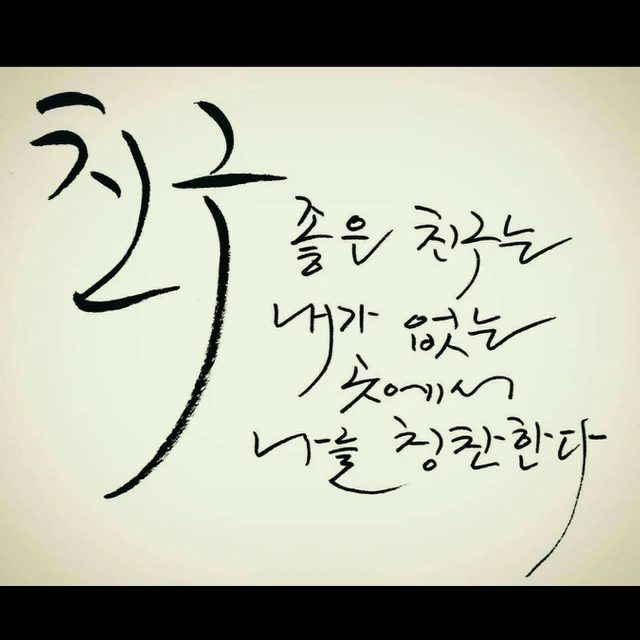 친구
좋은 친구는
내가 없는
곳에서
나를 칭찬한다